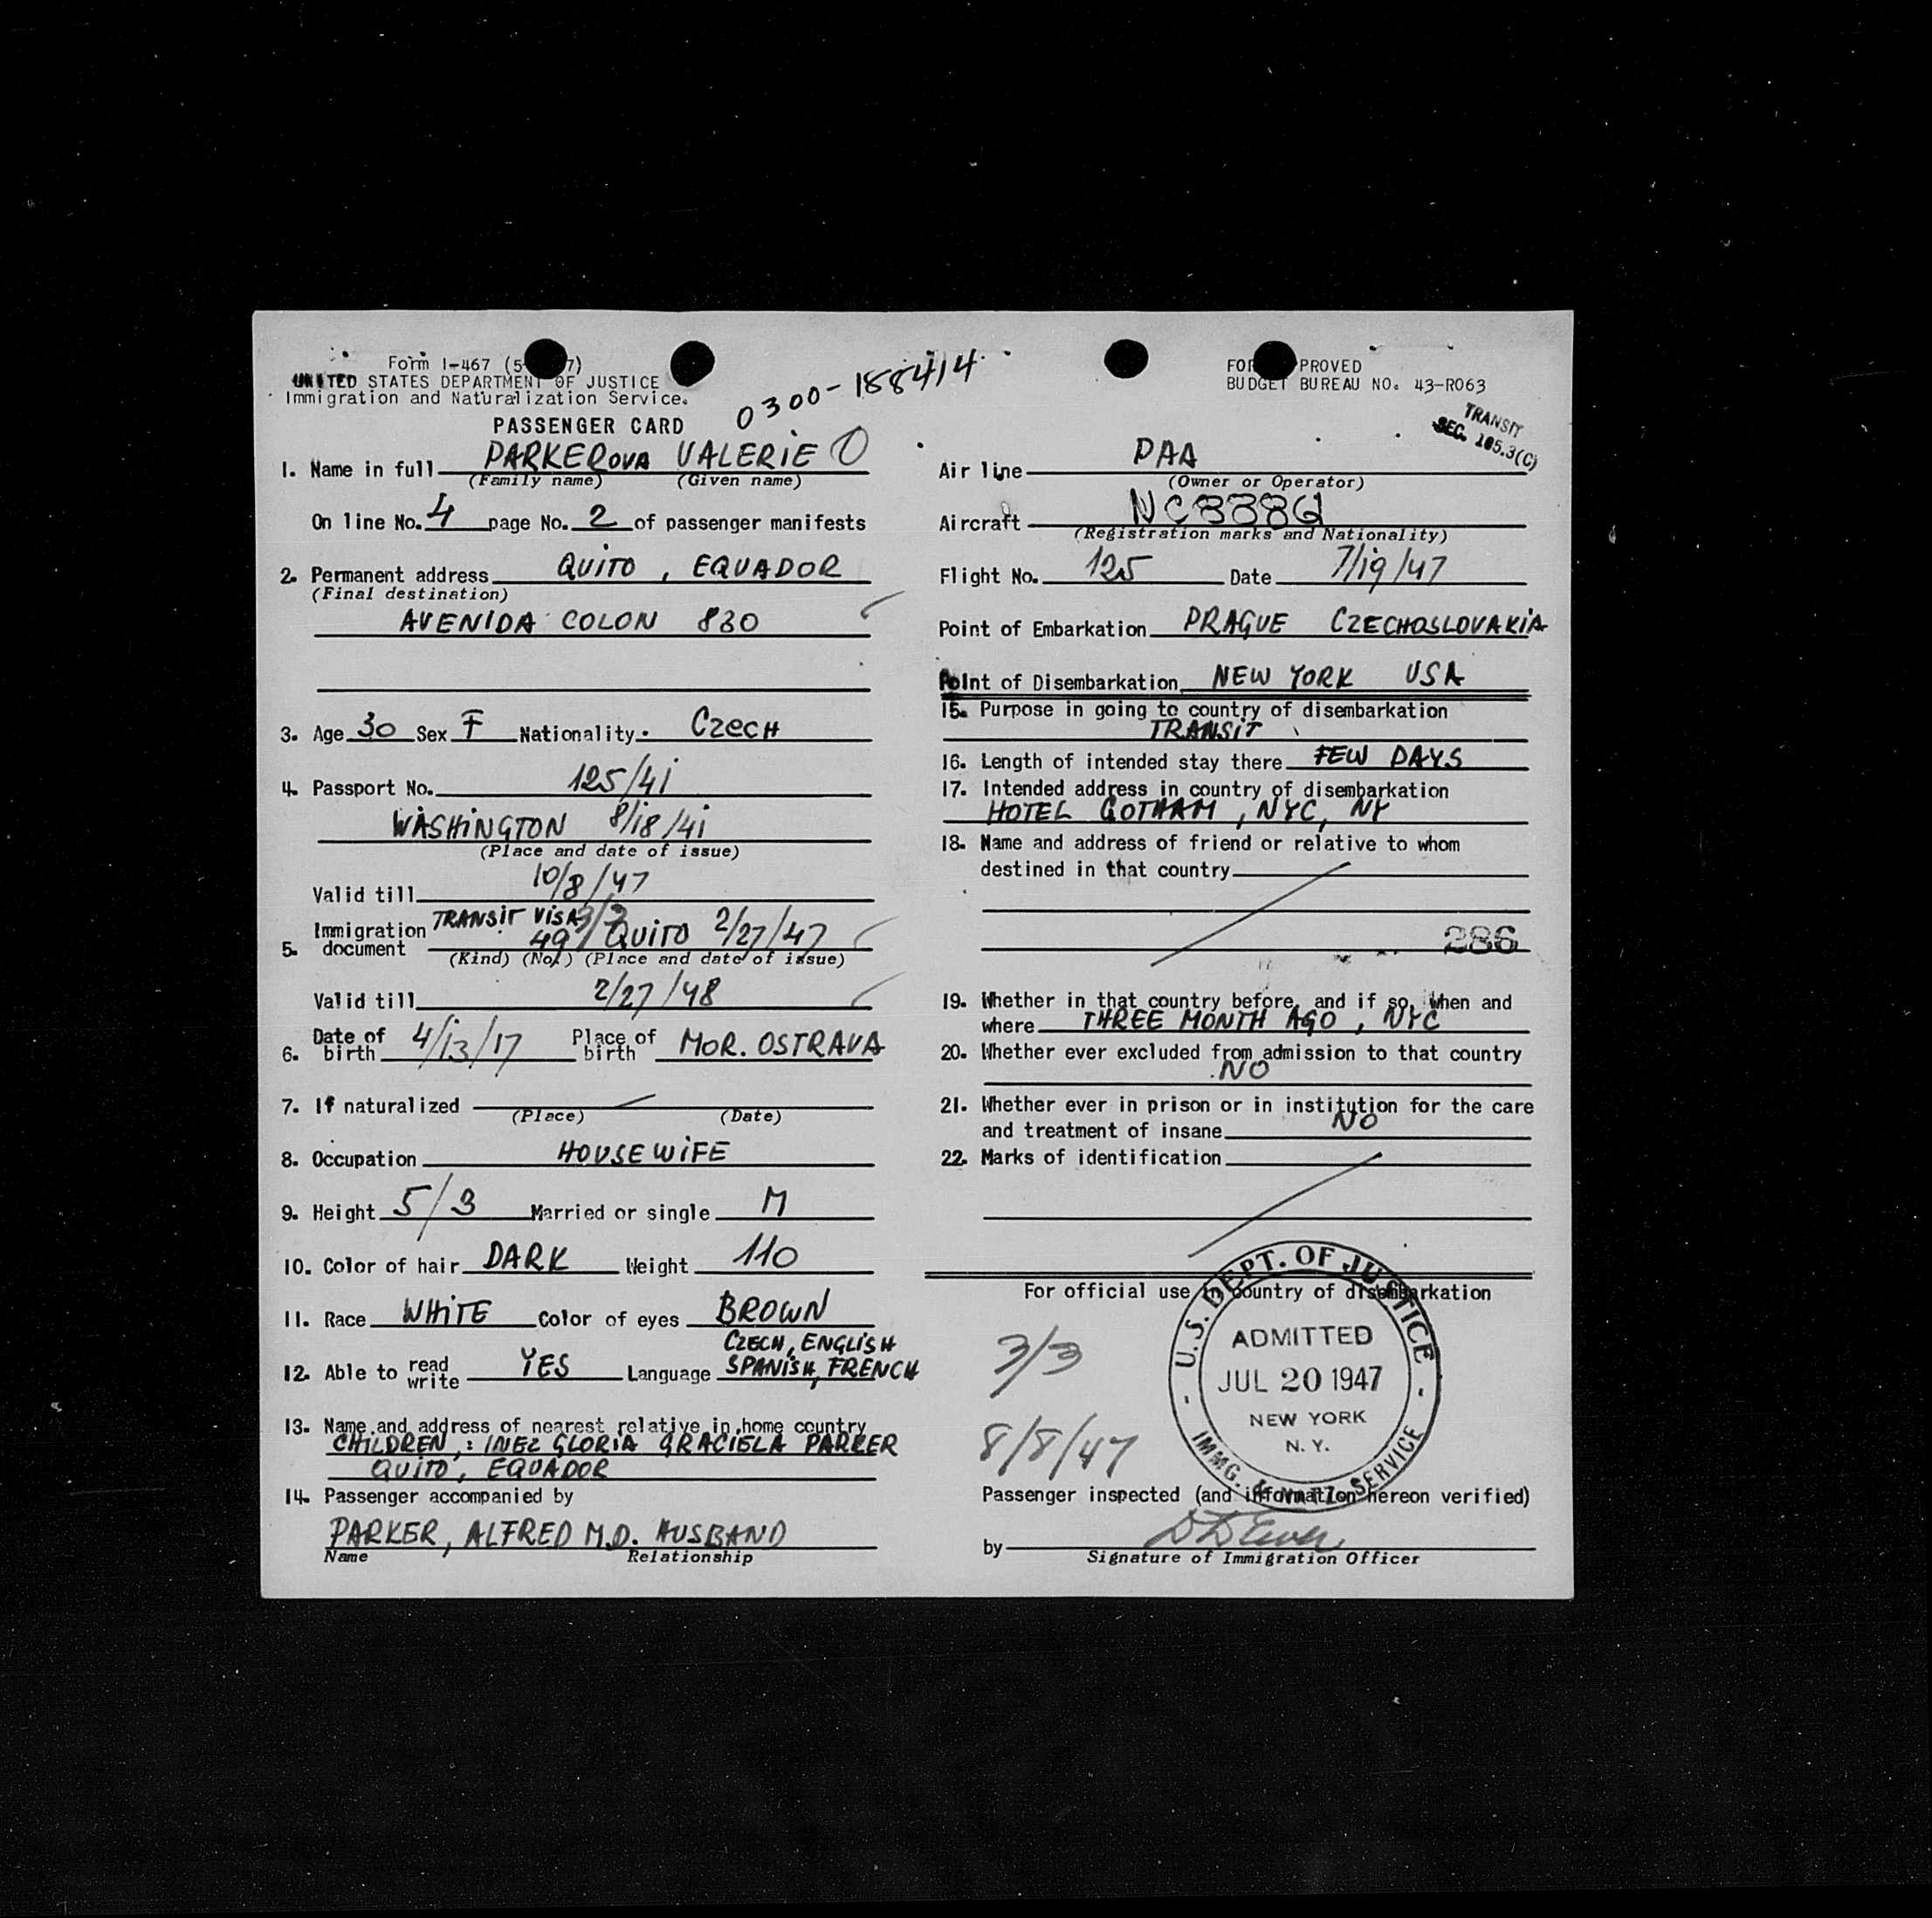 Form I-467 (5- 7)
UNITED STATES DEPARTMENT OF JUSTICE
Immigration and Naturalization Service.
PASSENGER CARD
0300-188414
FOR PROVED
BUDGET BUREAU NO. 43-R063
TRANSIT
SEC. 105.3(C)
1. Name in full PARKEROVA VALERIE
(Family name) (Given name)
On line No. 4 page No. 2 of passenger manifests
2. Permanent address QUITO, EQUADOR
(Final destination)
AVENIDA COLON 830
3. Age 30 Sex F Nationality CZECH
4. Passport No. 125/41
WASHINGTON 8/18/41
(Place and date of issue)
Valid till 10/8/47
5. Immigration document TRANSIT VISA 3/3
49 / QUITO 2/27/47
(Kind) (No.) (Place and date of issue)
Valid till 2/27/48
6. Date of birth 4/13/17 Place of birth MOR. OSTRAVA
7. If naturalized
(Place) (Date)
8. Occupation HOUSEWIFE
9. Height 5/3 Married or single M
10. Color of hair DARK Weight 110
11. Race WHITE Color of eyes BROWN
12. Able to read write YES Language CZECH, ENGLISH
SPANISH, FRENCH
13. Name and address of nearest relative in home country
CHILDREN,: INEZ GLORIA GRACIELA PARKER
QUITO, EQUADOR
14. Passenger accompanied by
PARKER, ALFRED M.D. HUSBAND
Name Relationship
Air line PAA
(Owner or Operator)
Aircraft
(Registration marks and Nationality)
Flight No. 125 Date 7/19/47
Point of Embarkation PRAGUE CZECHOSLOVAKIA
Point of Disembarkation NEW YORK USA
15. Purpose in going to country of disembarkation
TRANSIT
16. Length of intended stay there FEW DAYS
17. Intended address in country of disembarkation
HOTEL GOTHAM, NYC, NY
18. Name and address of friend or relative to whom
destined in that country
286
19. Whether in that country before, and if so, when and
where THREE MONTH AGO, NYC
20. Whether ever excluded from admission to that country
NO
21. Whether ever in prison or in institution for the care
and treatment of insane NO
22. Marks of identification
For official use in country of disembarkation
3/3
8/8/47
U.S. DEPT. OF JUSTICE
ADMITTED
JUL 20 1947
NEW YORK
N. Y.
IMMG. & NATZ. SERVICE
Passenger inspected (and information hereon verified)
by
Signature of Immigration Officer